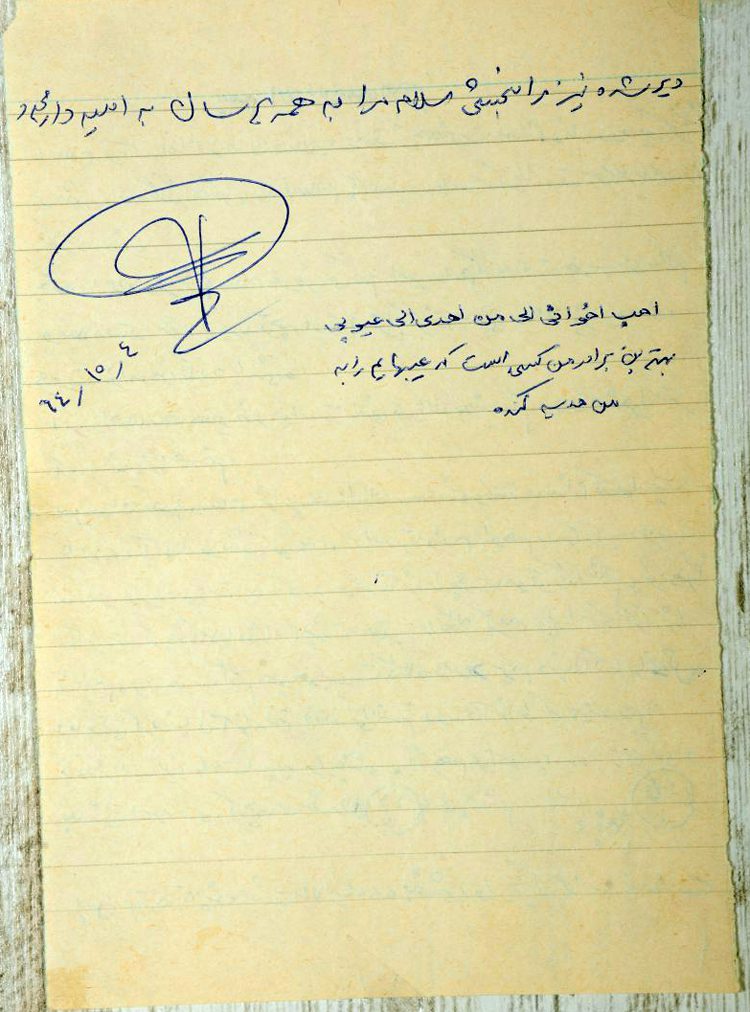 دیر شده نیز مرا ببخشی سلام مرا به همه برسان به امید دیدار
احب اخوانی الی من اهدی الی عیوبی
بهترین برادر من کسی است که عیبهایم را به
من هدیه کند
٦٤/١٠/٤